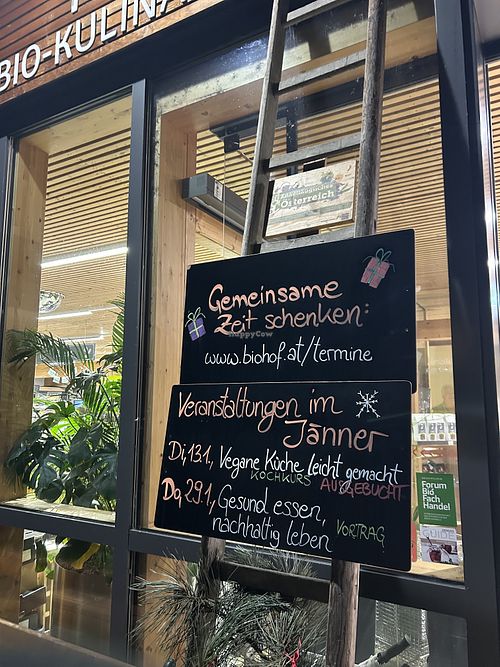 BIO-KULINA
Österreich
Gemeinsame
Zeit schenken:
www.biohof.at/termine
Veranstaltungen im
Jänner
Di, 13.1., Vegane Küche leicht gemacht
KOCHKURS AUSGEBUCHT
Do, 29.1., Gesund essen,
nachhaltig leben VORTRAG
Forum
Bio
Fach
Handel
GUIDE
HappyCow